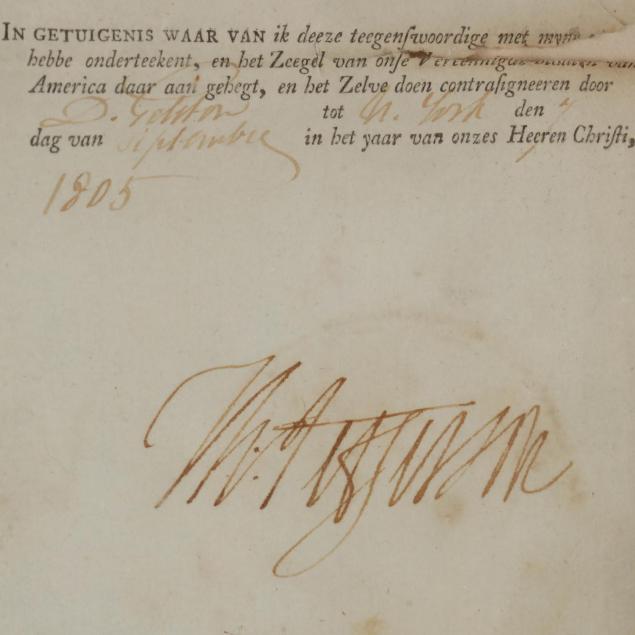 IN GETUIGENIS WAAR VAN ik deeze teegenſwoordige met
hebbe onderteekent, en het Zeegel van onſe Vereennigde Staaten van
America daar aan gehegt, en het Zelve doen contraſigneeren door
D. Gelston tot N. York den 7
dag van September in het yaar van onzes Heeren Chriſti,
1805
Th. Jefferson